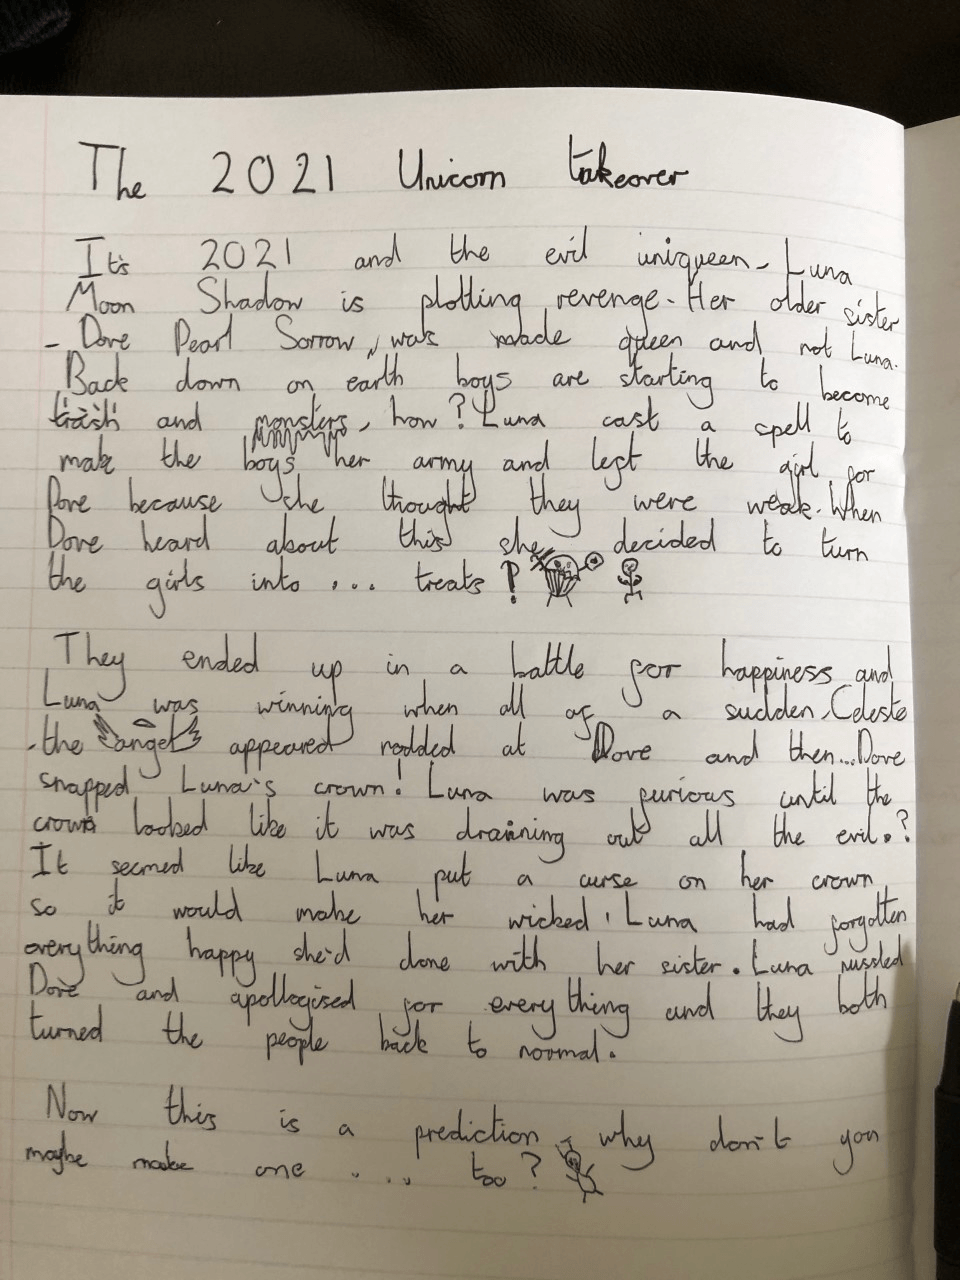 The 2021 Unicorn takeover
It's 2021 and the evil uniqueen - Luna
Moon Shadow is plotting revenge. Her older sister
- Dove Pearl Sorrow, was made queen and not Luna.
Back down on earth boys are starting to become
and monsters, how? Luna cast a spell to
make the boys her army and left the girl for
Dove because she thought they were weak. When
Dove heard about this she decided to turn
the girls into ... treats?
They ended up in a battle for happiness and
Luna was winning when all of a sudden, Celeste
- the angel appeared nodded at Dove and then... Dove
snapped Luna's crown! Luna was furious until the
crown looked like it was draining out all the evil.?
It seemed like Luna put a curse on her crown
so it would make her wicked! Luna had forgotten
everything happy she'd done with her sister. Luna nussled
Dove and apollogised for everything and they both
turned the people back to normal.
Now this is a prediction - why don't you
maybe make one .... too?